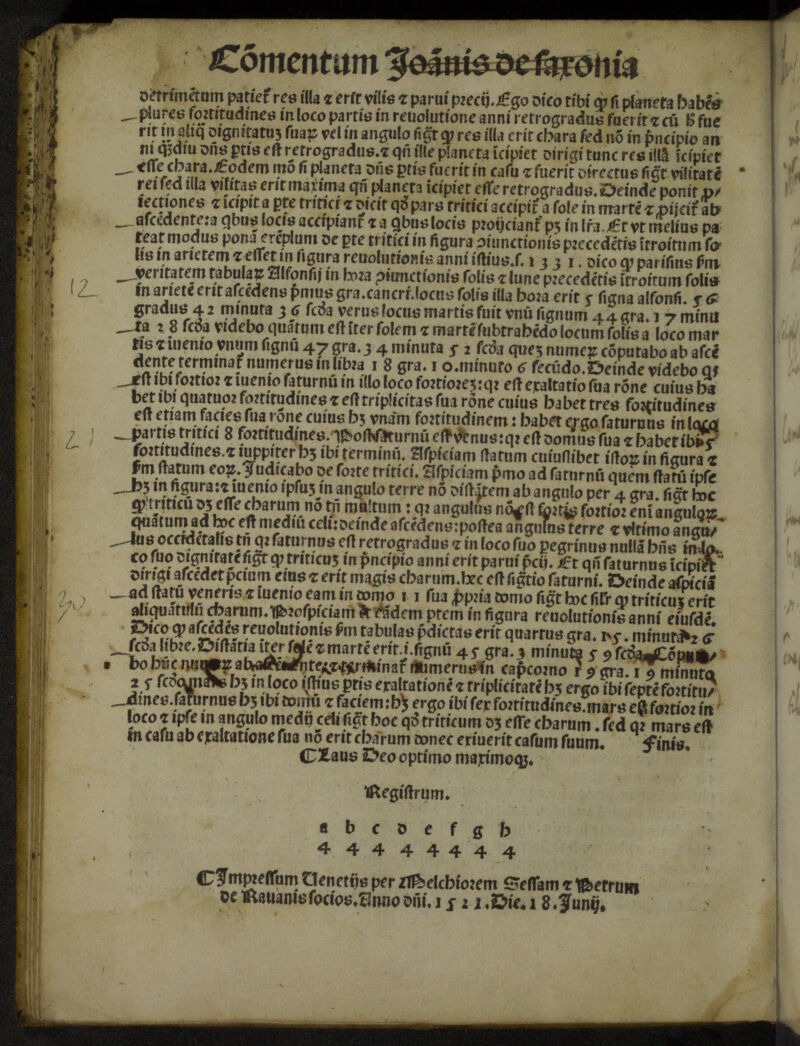 Cōmentum Joānis de saxonia
detrimētum patiet᷑ res illa ⁊ erit vilis ⁊ parui precij. Ego dico tibi ꝙ si planeta habēs
plures fortitudines in loco partis in reuolutione anni retrogradus fuerit ⁊ cū h̄ fue
rit in aliq̄ dignitatuꝫ suaꝝ vel in angulo figt̄ ꝙ res illa erit chara sed nō in pn̄cipio an
ni qꝫdiu dn̄s ptis est retrogradus. ⁊ qn̄ ille planeta īcipiet dirigi tunc res illā īcipiet
esse chara. Eodem mō si planeta dn̄s ptis fuerit in casu ⁊ fuerit directus figt̄ vilitatē
rei sed illa vilitas erit maxima qn̄ planeta īcipiet esse retrogradus. Deinde ponit ꝓ/
iectiones ⁊ īcipit a pte tritici ⁊ dicit qđ pars tritici accipit᷑ a sole in martē ⁊ ꝓijcit᷑ ab
ascēdente: a qbus locis accipiant᷑ ⁊ a qbus locis proijciant᷑ pꝫ in lr̄a. Et vt melius pa
teat modus ponā exēplum de pte tritici in figura ↄiunctionis precedētis ītroitum so
lis in arietem ⁊ esset in figura reuolutionis anni istius .s. 1331. dico ꝙ parisius sm̄
veritatem tabulaꝝ Alfonsij in hora ↄiunctionis solis ⁊ lune precedētis ītroitum solis
in arietē erit ascēdens pm̄us gra. cancri. locus solis illa hora erit 5 signa alfonsi. 56
gradus 42 minuta 36 scđa verus locus martis fuit vnū signum 44 gra. 17 minu
ta 28 scđa videbo quātum est iter solem ⁊ martē subtrahēdo locum solis a loco mar
tis ⁊ iuenio vnum signū 47 gra. 34 minuta 52 scđa queꝫ numeꝝ cōputabo ab ascē
dente terminat᷑ numerus in libra 18 gra. 10. minuto 6 secūdo. Deinde videbo qs
est ibi fortior ⁊ iuenio saturnū in illo loco fortioreꝫ: qꝛ est exaltatio sua rōne cuius ha
bet ibi quatuor fortitudines ⁊ est triplicitas sua rōne cuius habet tres fortitudines
est etiam facies sua rōne cuius hꝫ vnam fortitudinem: habet ergo saturnus in loco
partis tritici 8 fortitudines. Post saturnū est venus: qꝛ est domus sua ⁊ habet ibi 5
fortitudines. ⁊ iuppiter hꝫ ibi terminū. Aspiciam statum cuiuslibet istoꝝ in figura ⁊
sm̄ statum eoꝝ. Judicabo de forte tritici. Aspiciam pm̄o ad saturnū quem statū ipse
hꝫ in figura: ⁊ iuenio ipsuꝫ in angulo terre nō distātem ab angulo per 4 gra. figt̄ hoc
ꝙ triticū dꝫ esse charum nō tn̄ multum: qꝛ angulus nō est fortis fortior eni anguloꝝ
quātum ad hoc est mediū celi: deinde ascēdens: postea angulus terre ⁊ vltimo angu/
lus occidētalis tn̄ qꝛ saturnus est retrogradus ⁊ in loco suo pegrinus nullā hn̄s in lo
co suo dignitatē figt̄ ꝙ triticuꝫ in pn̄cipio anni erit parui pcij. Et qn̄ saturnus īcipiet
dirigi ascēdet pcium eius ⁊ erit magis charum. hec est figtio saturni. Deinde aspiciā
ad statū veneris ⁊ iuenio eam in domo 11 sua ꝓpria domo figt̄ hoc silr̄ ꝙ triticuꝫ erit
aliquātulū charum. Prospiciam ⁊ eādem ptem in figura reuolutionis anni eiusdē.
Dico ꝙ ascēdēs reuolutionis sm̄ tabulas pdictas erit quartus gra. 15. minuta 2 6
scđa libre. Distātia iter solē ⁊ martē erit .i. signū 45 gra. 3 minuta 59 scđa. Cōputa/
bo hūc numeꝝ ab ascēdente ⁊ terminat᷑ numerus in capcorno 19 gra. 19 minuta
25 scđa mars hꝫ in loco istius ptis exaltationē ⁊ triplicitatē hꝫ ergo ibi septē fortitu/
dines. saturnus hꝫ ibi domū ⁊ faciem: hꝫ ergo ibi sex fortitudines. mars est fortior in
loco ⁊ ipse in angulo medij celi figt̄ hoc qđ triticum dꝫ esse charum. sed qꝛ mars est
in casu ab exaltatione sua nō erit charum donec exiuerit casum suum. Finis.
⸿ Laus Deo optimo maximoqꝫ.
Registrum.
a b c d e f g h
4 4 4 4 4 4 4 4
⸿ Impressum Uenetijs per Melchiorem Sessam ⁊ Petrum
de Rauanis socios. Anno dn̄i. 1521. Die. 18. Junij.
12
21
30